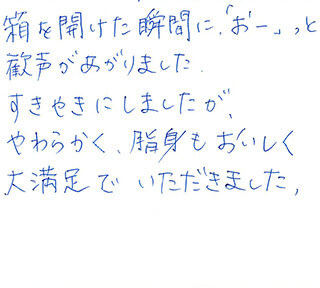 箱を開けた瞬間に、「おー」っと
歓声があがりました.
すきやきにしましたが、
やわらかく、脂身もおいしく
大満足で いただきました,